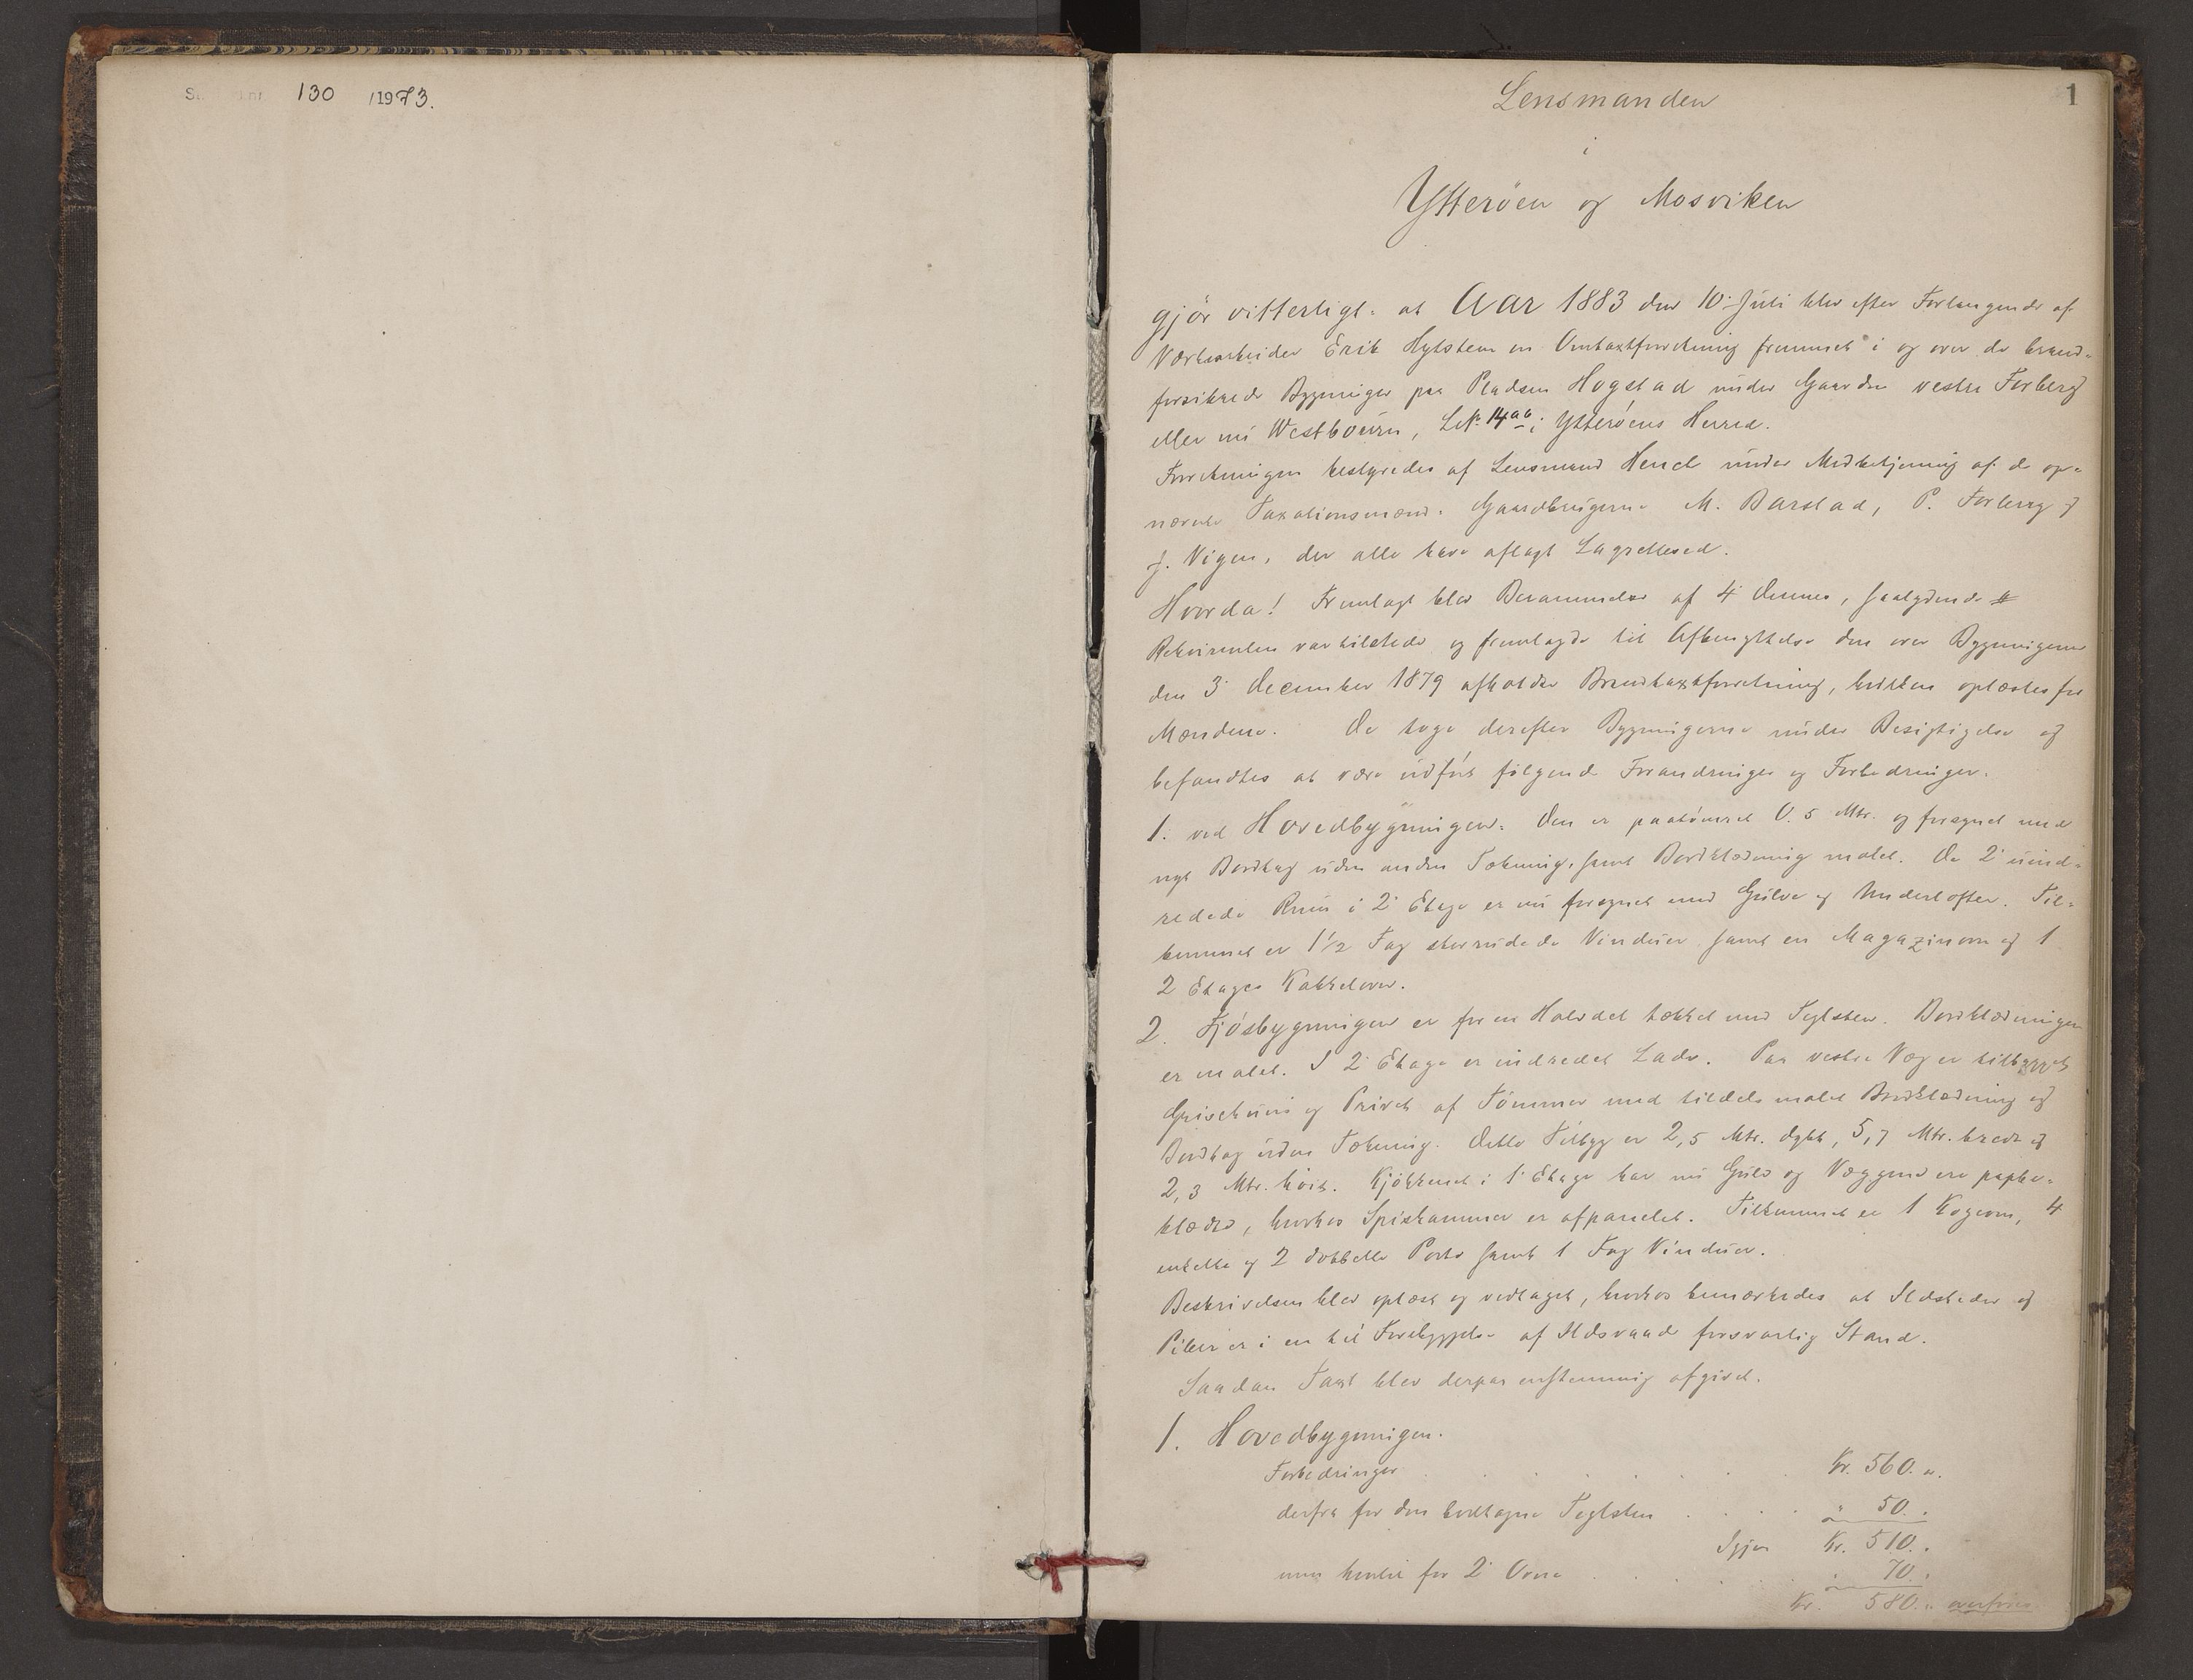 130 /1973.
1
Lensmanden
i
Ytterøen og Mosviken
gjør vitterligt: at Aar 1883 den 10. Juli blev efter Forlangende af
Værksarbeider Erik Hylstem en Omtaxtforretning fremmet i og over de brand-
forsikrede Bygninger paa Pladsen Hogstad under Gaarden vestre Forberg
eller nu Westbøurn, L.N. 14 aa i Ytterøens Herred.
Forretningen bestyredes af Lensmand Henck under Medbetjening af de op-
nævnte Taxationsmænd: Gaardbrugerne M. Barstad, P. Forberg og
J. Vigen, der alle have aflagt Lagrettesed.
Hvorda! Fremlagt blev Berammelse af 4 dennes, saalydende #
Rekvirenten var tilstede og fremlagde til Afbenyttelse den over Bygningerne
den 3. December 1879 afholdte Brandtaxtforretning, hvilken oplæstes for
Mændene. De toge derefter Bygningerne under Besigtigelse og
befandtes at være udført følgende Forandringer og Forbedringer.
1. ved Hovedbygningen: Den er paatømret 0.5 Mtr. og forsynet med
nyt Bordtag uden anden Tækning, samt Bordklædning malet. De 2 uind-
redede Rum i 2. Etage er nu forsynet med Gulve og Underlofter. Til-
kommet er 1 1/2 Fag storrudede Vinduer samt en Magazinovn og 1
2 Etages Kakkelovn.
2. Fjøsbygningen er for en Halvdel tækket med Teglsten. Bordklædningen
er malet. I 2. Etage er indredet Lade. Paa vestre Væg er tilbygget
Grisehuus og Privet af Tømmer med tildels malet Bordklædning og
Bordtag uden Tækning. Dette Tilbyg er 2,5 Mtr. dybt, 5,7 Mtr. bredt og
2,3 Mtr. høit. Kjøkkenet i 1. Etage har nu Gulv og Væggene ere papbe-
klædte, hvorhos Spiskammer er afpanelet. Tilkommet er 1 Kogeovn, 4
enkelte og 2 dobbelte Porte samt 1 Fag Vinduer.
Beskrivelsen blev oplæst og vedtaget, hvorhos bemærkedes at Ildsteder og
Piber er i en til Forebyggelse af Ildsvaade forsvarlig Stand.
Saadan Taxt blev derpaa enstemmig afgivet.
1. Hovedbygningen.
Forbedringer . . . . . . Kr. 560. "
derfra for den borttagne Teglsten . . . . " 50. "
Igjen Kr. 510. "
men hertil for 2 Ovne . . . . " 70. "
Kr. 580. " overføres